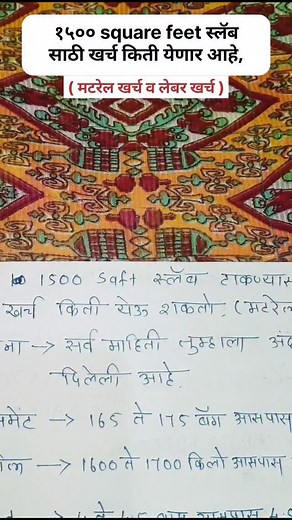 १५०० square feet स्लॅब
साठी खर्च किती येणार आहे,
( मटरेल खर्च व लेबर खर्च )
1500 Saft स्लॅब टाकण्यास
खर्च किती येऊ शकतो. (मटरेल
→ सर्व माहिती तुम्हाला अंदा
दिलेली आहे.
मेंट → 165 ते 175 बॅग आसपास
→ 1600 ते 1700 किलो आसपास